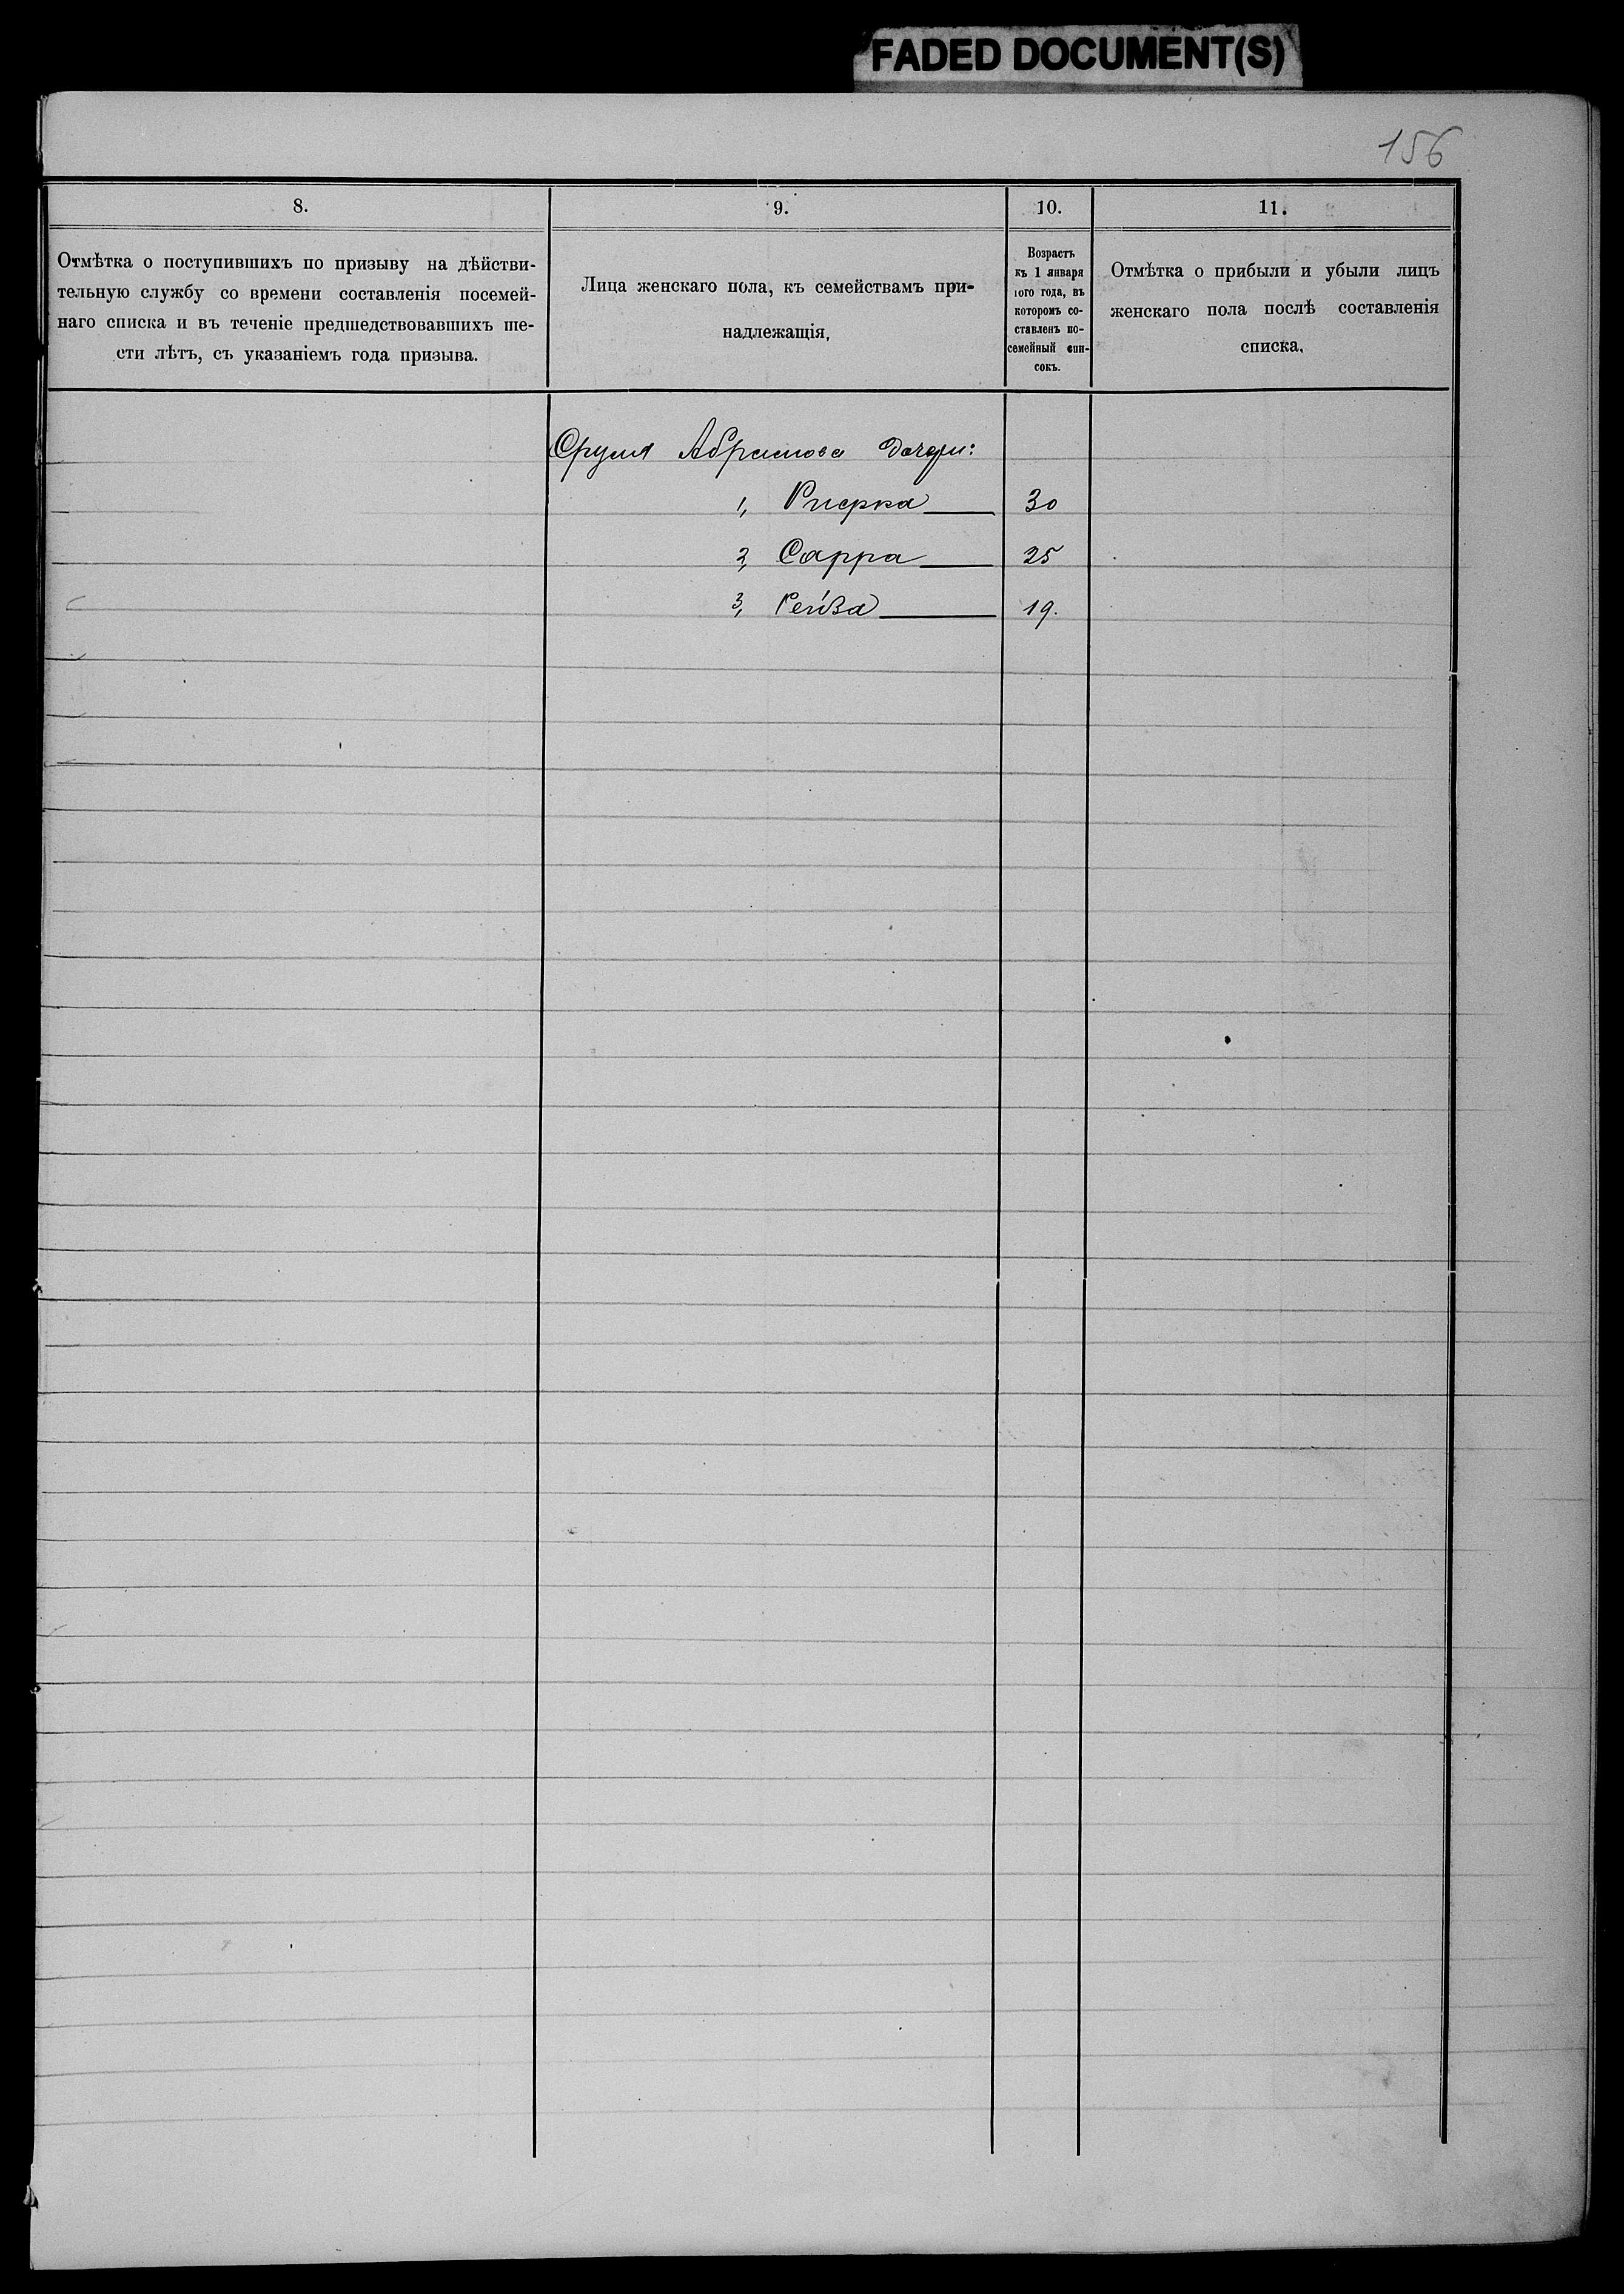 FADED DOCUMENT(S)
156
8.
Отмѣтка о поступившихъ по призыву на дѣйстви-
тельную службу со времени составленія посемей-
наго списка и въ теченіе предшедствовавшихъ ше-
сти лѣтъ, съ указаніемъ года призыва.
9.
Лица женскаго пола, къ семействамъ при-
надлежащія,
10.
Возрастъ
къ 1 января
того года, въ
которомъ со-
ставленъ по-
семейный спи-
сокъ.
11.
Отмѣтка о прибыли и убыли лицъ
женскаго пола послѣ составленія
списка,
Сруля Абрамова дочери:
1, 30
2, Сарра 25
3, Рейза 19.